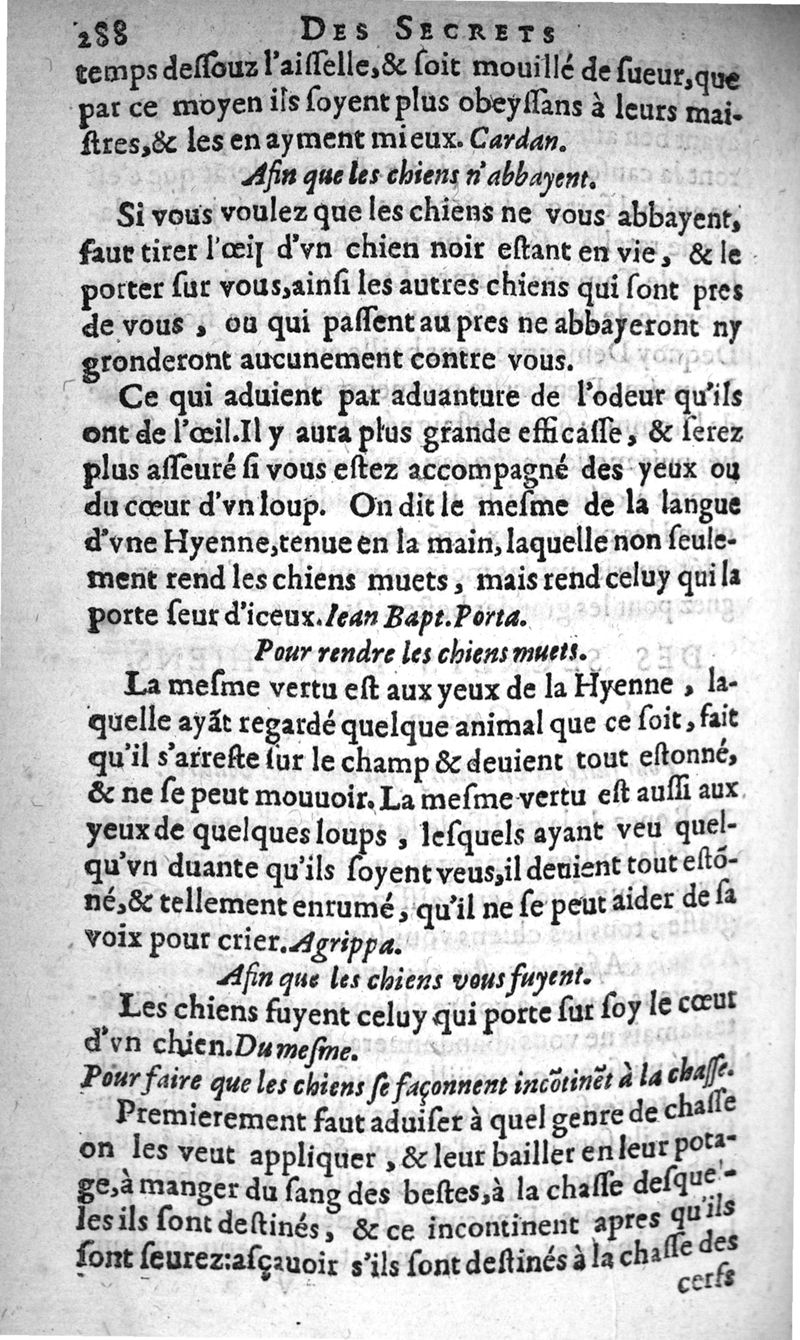 288 DES SECRETS
temps deſſouz l'aiſſelle,& ſoit mouillé de ſueur,que
par ce moyen ils ſoyent plus obeyſſans à leurs mai-
ſtres,& les en ayment mieux. Cardan.
Afin que les chiens n'abbayent.
Si vous voulez que les chiens ne vous abbayent,
faut tirer l'œil d'vn chien noir eſtant en vie, & le
porter ſur vous,ainſi les autres chiens qui ſont pres
de vous , ou qui paſſent au pres ne abbayeront ny
gronderont aucunement contre vous.
Ce qui aduient par aduanture de l'odeur qu'ils
ont de l'œil.Il y aura plus grande efficaſſe, & ſerez
plus aſſeuré ſi vous eſtez accompagné des yeux ou
du cœur d'vn loup. On dit le meſme de la langue
d'vne Hyenne,tenue en la main, laquelle non ſeule-
ment rend les chiens muets, mais rend celuy qui la
porte ſeur d'iceux.Iean Bapt.Porta.
Pour rendre les chiens muets.
La meſme vertu eſt aux yeux de la Hyenne , la-
quelle ayãt regardé quelque animal que ce ſoit, fait
qu'il s'arreſte ſur le champ & deuient tout eſtonné,
& ne ſe peut mouuoir. La meſme vertu eſt auſſi aux
yeux de quelques loups , leſquels ayant veu quel-
qu'vn duante qu'ils ſoyent veus,il deuient tout eſtõ-
né,& tellement enrumé, qu'il ne ſe peut aider de ſa
voix pour crier.Agrippa.
Afin que les chiens vous fuyent.
Les chiens fuyent celuy qui porte ſur ſoy le cœur
d'vn chien.Du meſme.
Pour faire que les chiens ſe façonnent incõtinẽt à la chaſſe.
Premierement faut aduiſer à quel genre de chaſſe
on les veut appliquer , & leur bailler en leur pota-
ge,à manger du ſang des beſtes,à la chaſſe deſque-
les ils ſont deſtinés, & ce incontinent apres qu'ils
ſont ſeurez:aſçauoir s'ils ſont deſtinés à la chaſſe des
cerfs